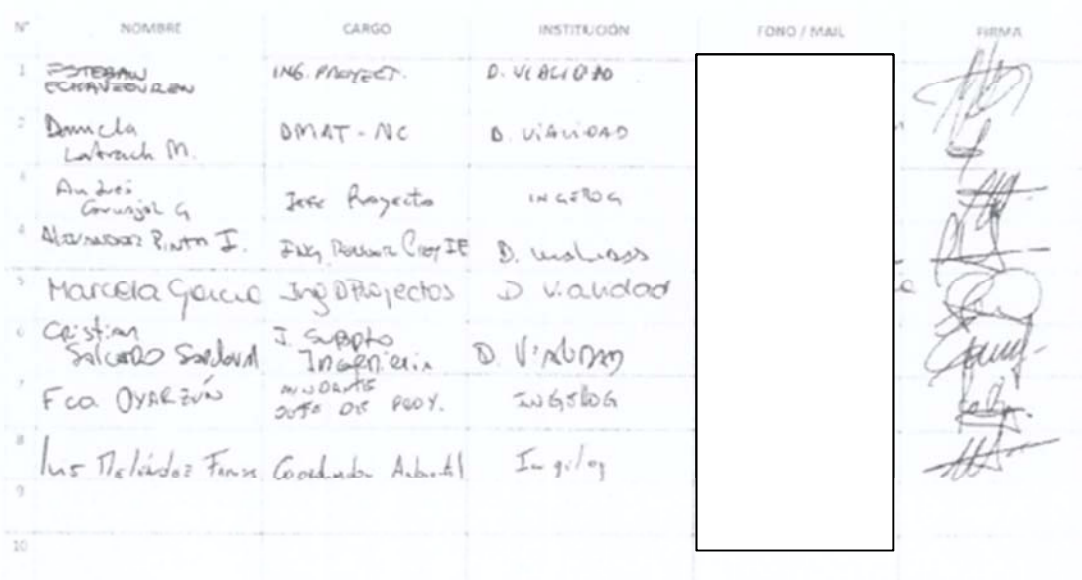 N° NOMBRE CARGO INSTITUCIÓN FONO / MAIL FIRMA
1 ESTEBAN ECHAVEGUREN ING. PROYECT. D. VIALIDAD
2 Daniela Latrach M. DMAT - NC D. VIALIDAD
3 Andrés Carvajal G Jefe Proyecto INGELOG
4 ALEJANDRO PINTO I. D. Vialidad
5 Marcela Garcia Ing Proyectos D Vialidad
6 Cristian SALGADO Sandoval J. Subdpto Ingeniería D. VIALIDAD
7 Fca OYARZÚN AYUDANTE JEFE DE PROY. INGELOG
8 Luis Meléndez Coordinador Ambiental Ingelog
9
10